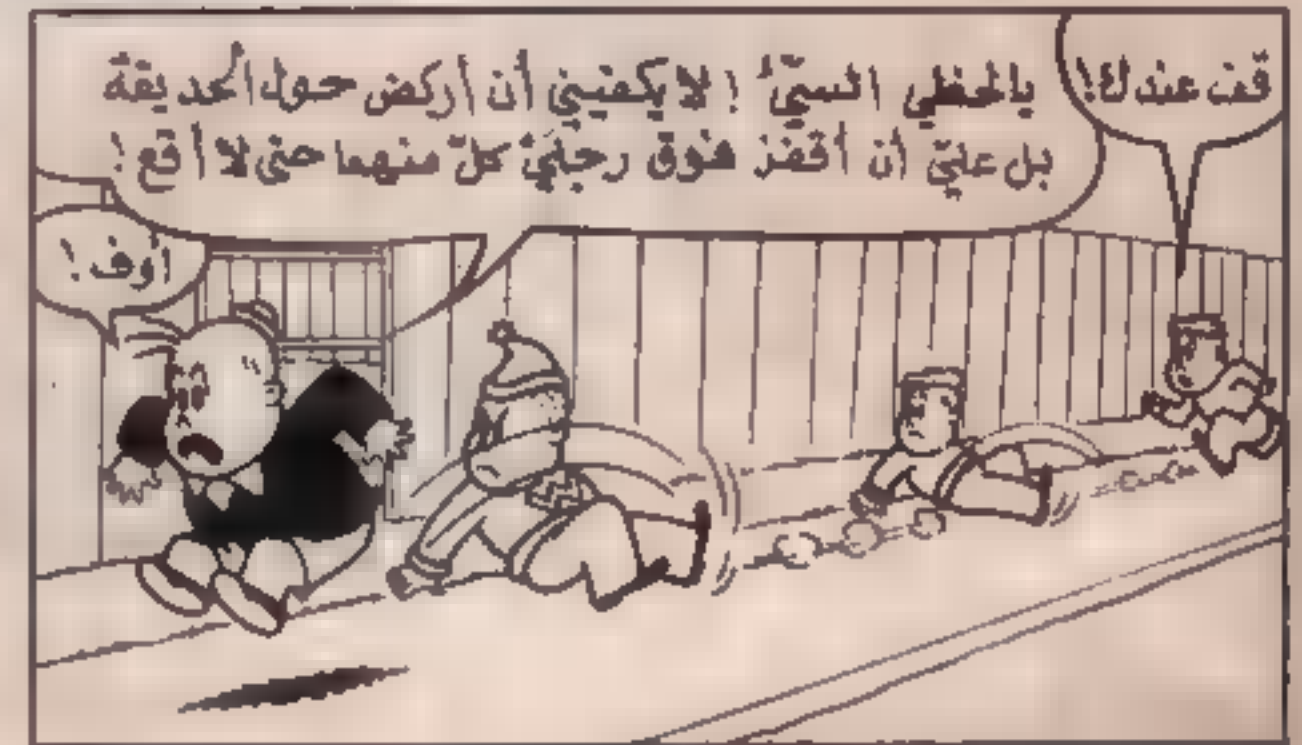 قف عندك!
يالحظي السيّئ! لا يكفيني أن أركض حول الحديقة
بل عليّ أن أقفز فوق رجليْ كلّ منهما حتى لا أقع!
أوف!